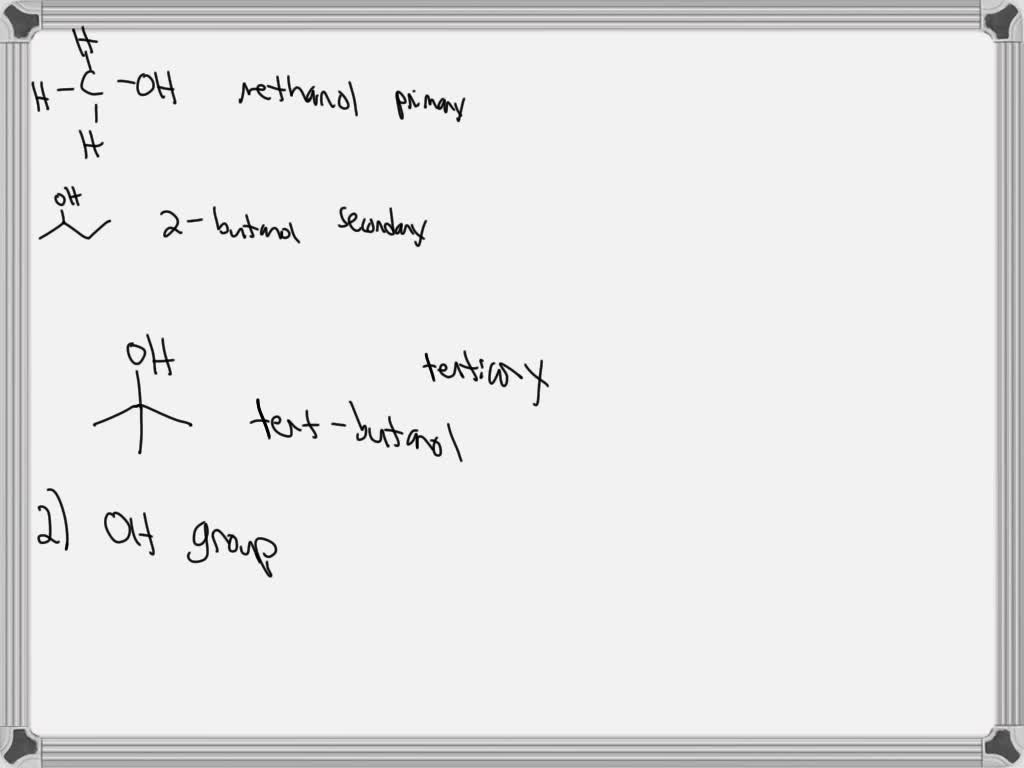 H
H - C - OH methanol primary
H
OH
2 - butanol secondary
OH
tertiary
tert - butanol
2) OH group